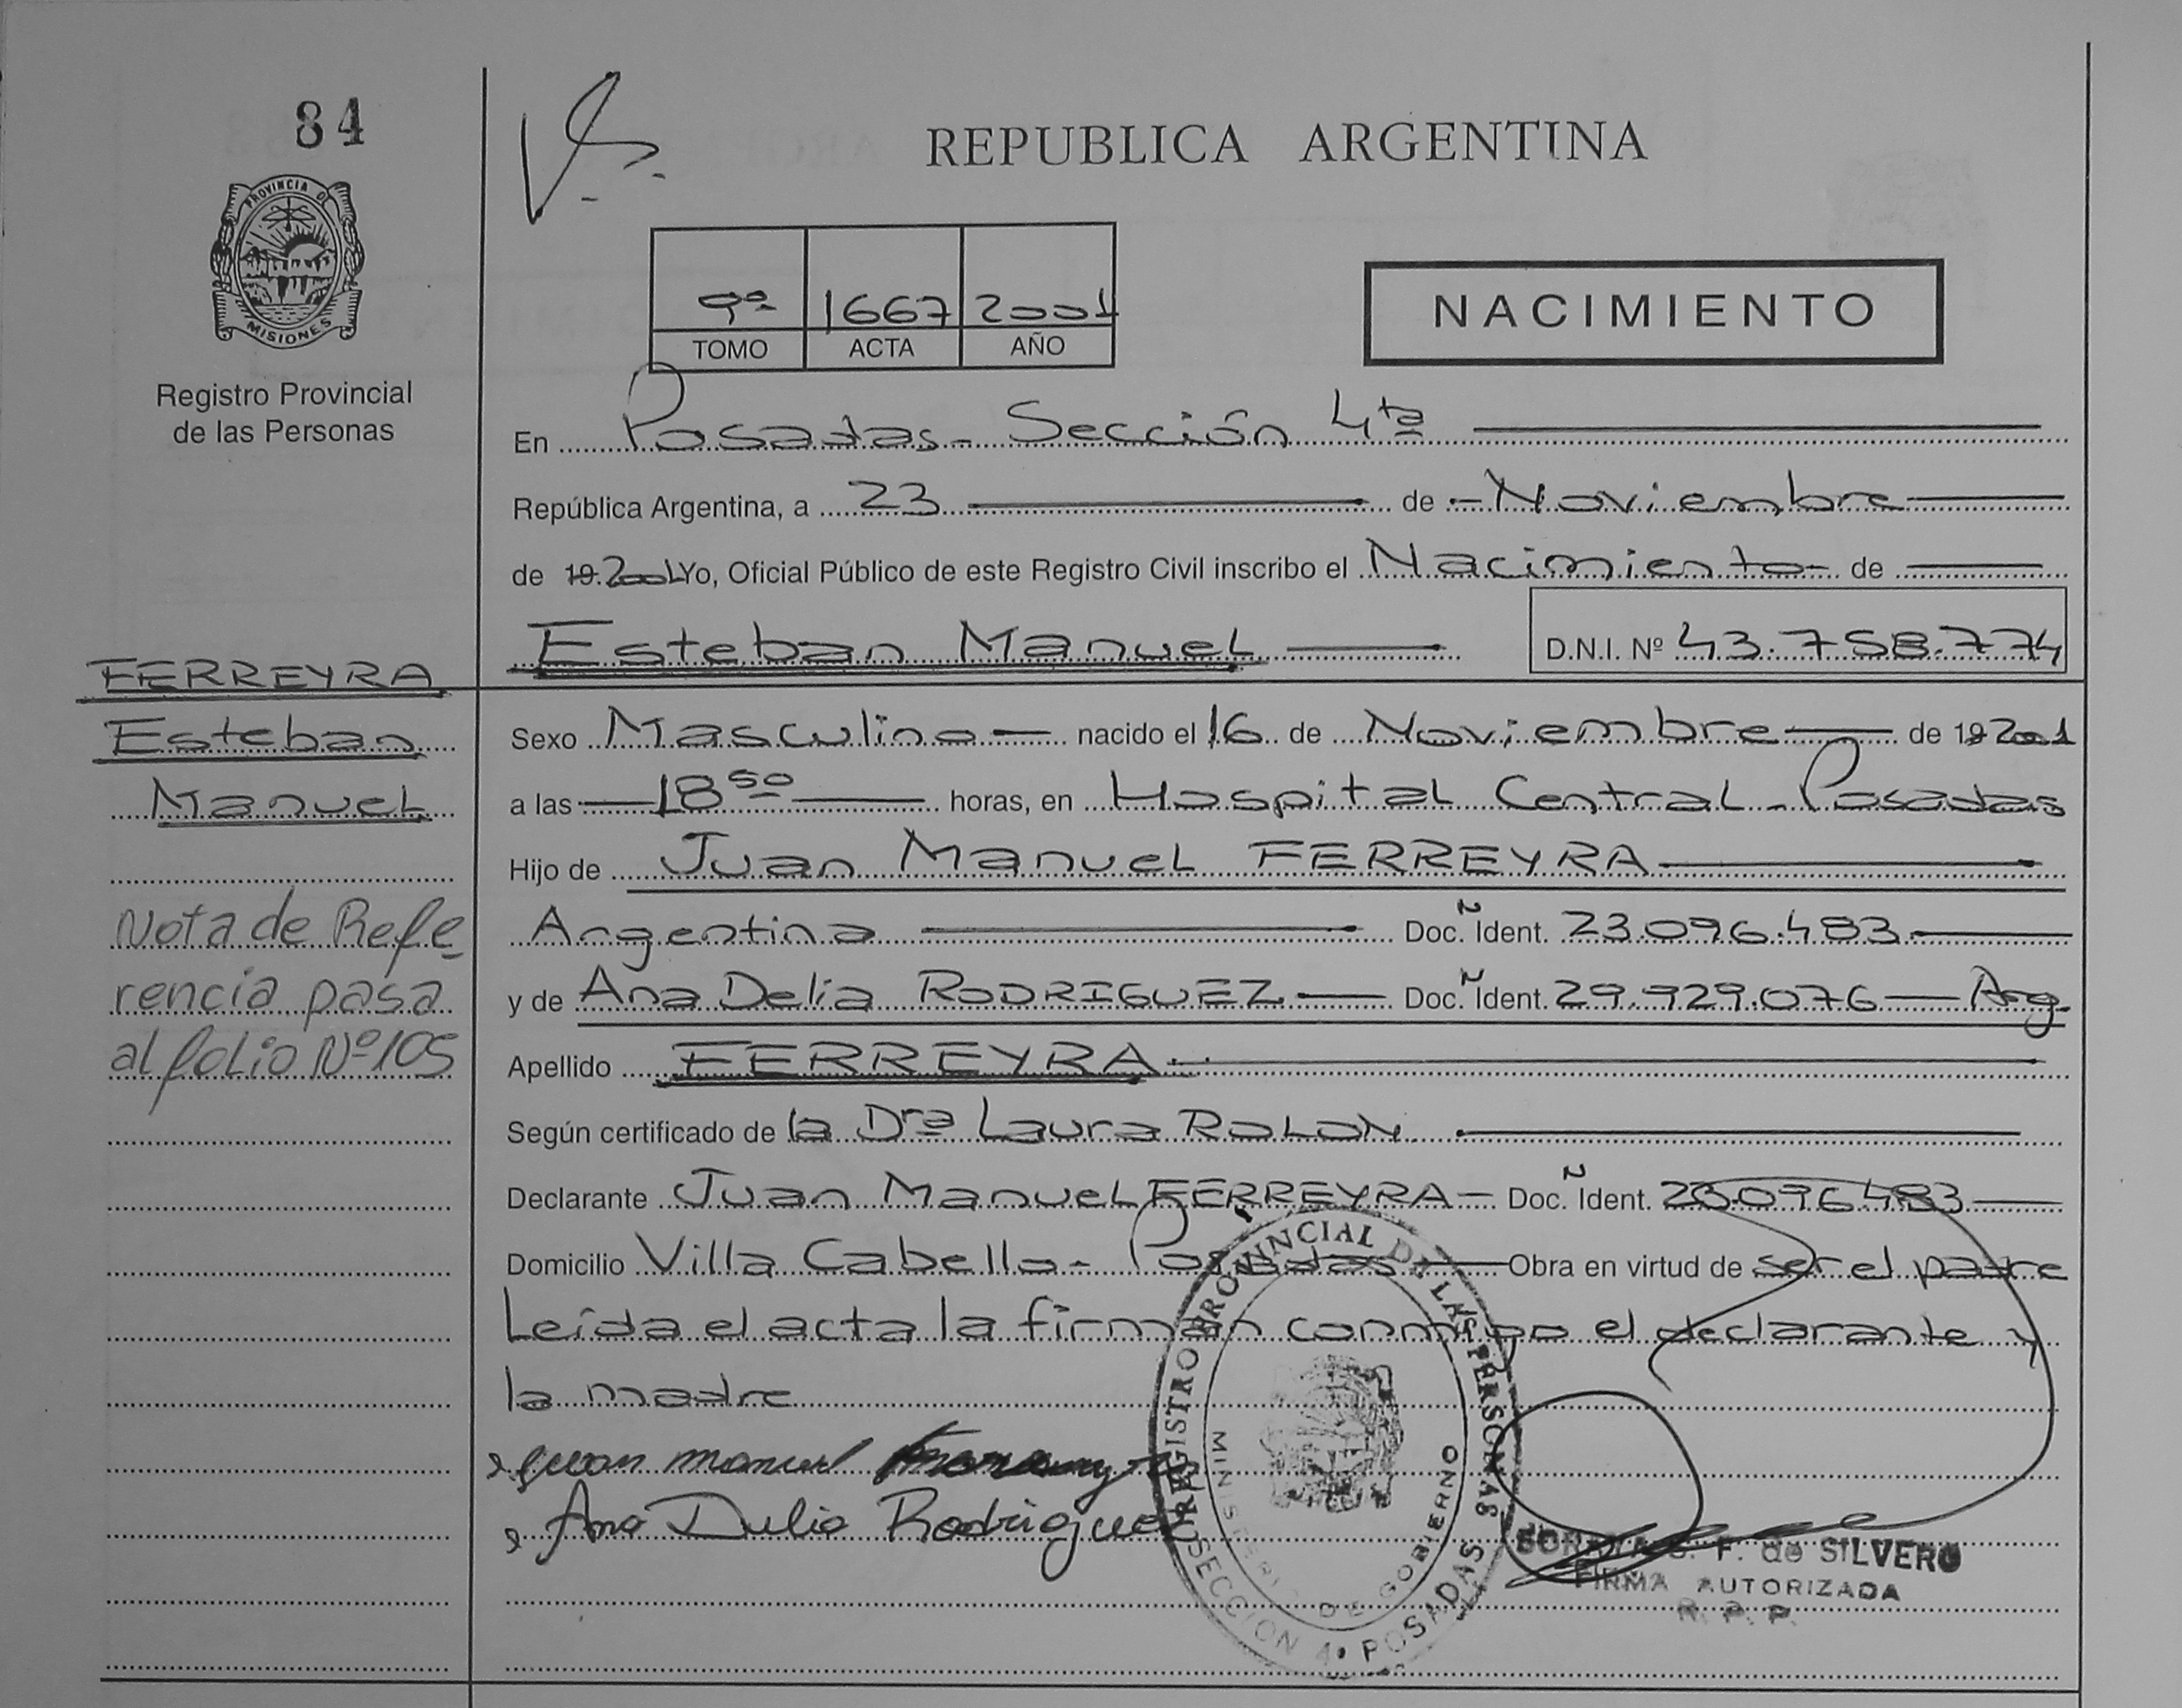 84
PROVINCIA D
MISIONES
Registro Provincial
de las Personas
REPUBLICA ARGENTINA
9º 1667 2001
TOMO ACTA AÑO
NACIMIENTO
En Posadas - Sección 4ta
República Argentina, a 23 de Noviembre
de 19 2001 Yo, Oficial Público de este Registro Civil inscribo el Nacimiento de
Esteban Manuel
D.N.I. Nº 43.758.774
FERREYRA
Esteban
Manuel
Nota de Refe
rencia pasa
al folio Nº 105
Sexo Masculino nacido el 16 de Noviembre de 19 2001
a las 18 50 horas, en Hospital Central - Posadas
Hijo de Juan Manuel FERREYRA
Argentina Doc. Ñ Ident. 23.096.483
y de Ana Delia RODRIGUEZ Doc. Ñ Ident. 29.929.076 - Arg.
Apellido FERREYRA
Según certificado de la Dra Laura ROLON
Declarante Juan Manuel FERREYRA - Doc. Ñ Ident. 23.096.483
Domicilio Villa Cabello - Posadas Obra en virtud de ser el padre
Leída el acta la firman conmigo el declarante y
la madre
Juan manuel
Ana Delia Rodriguez
REGISTRO PROVINCIAL DE LAS PERSONAS
MINISTERIO DE GOBIERNO
SECCION 4ª POSADAS
F. de SILVERO
FIRMA AUTORIZADA
R. P. P.